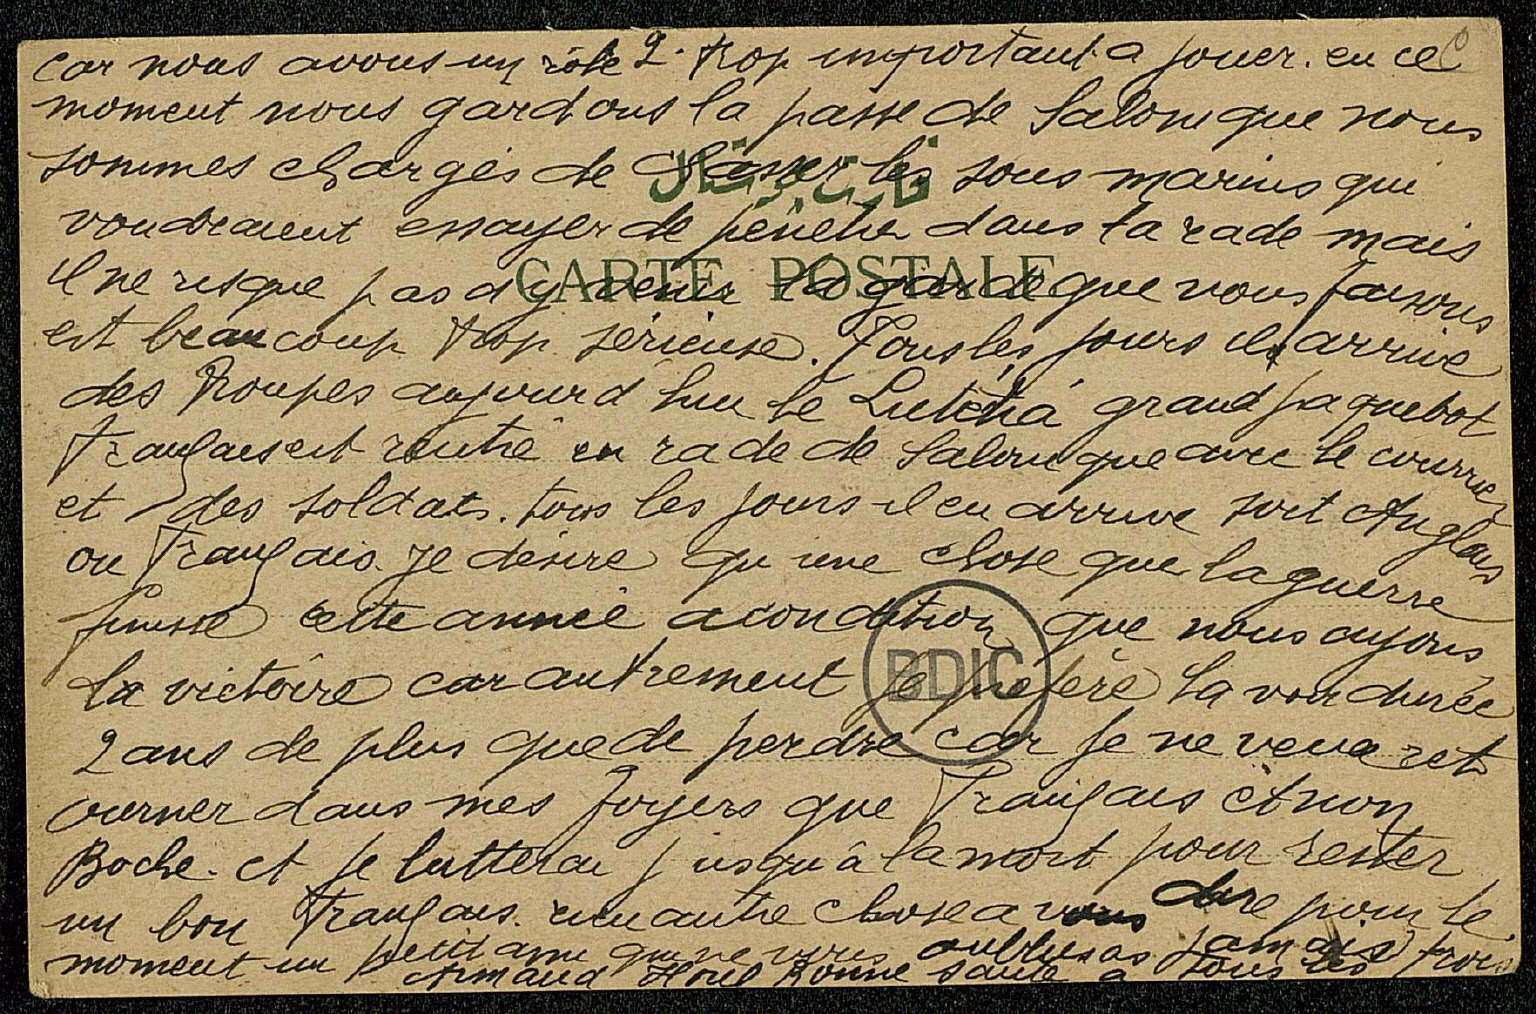 car nous avons un rôle 2. trop important a jouer. en ce
moment nous gardons la passe de Salonique nous
sommes chargés de chasser les sous marins qui
voudraient essayer de pénétrer dans la rade mais
il ne risque pas d'y venir la garde que nous faisons
CARTE POSTALE
est beaucoup trop sérieuse. Tous les jours il arrive
des troupes aujourd hui le Lutétia grand paquebot
Français est rentré en rade de Salonique avec le courrier
et des soldats. tous les jours il en arrive soit Anglais
ou Français. je désire qu une chose que la guerre
finisse cette année a condition que nous ayons
BDIC
la victoire car autrement je préfère la voir durée
2 ans de plus que de perdre car je ne veux ret
ourner dans mes foyers que Français et non
Boche. et je lutterai jusqu'à la mort pour rester
un bon Français. rien autre chose a vous dire pour le
moment un petit ami qui ne vous oubliera jamais
Armand Bonne santé a tous les trois